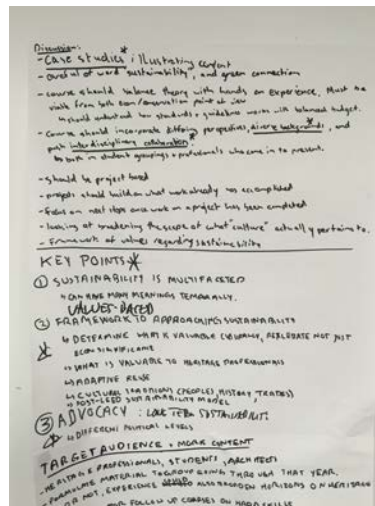 Discussion:
- Case studies* illustrating content
- careful of word "sustainability", and green connection
- course should balance theory with hands on experience. Must be
viable from both econ/conservation point of view
↳ should understand how standards + guidelines works with balanced budget.
- Course should incorporate differing perspectives, diverse backgrounds, and
push interdisciplinary collaboration*
↳ both in student groupings + professionals who come in to present.
- should be project based
- projects should build on what work already has accomplished
- focus on next steps once work on a project has been completed
- looking at broadening the scope of what "culture" actually pertains to.
- Framework of values regarding sustainability
KEY POINTS*
① SUSTAINABILITY IS MULTIFACETED
↳ CAN HAVE MANY MEANINGS TEMPORALLY.
VALUES-BASED
② FRAMEWORK TO APPROACHING SUSTAINABILITY
↳ DETERMINE WHAT IS VALUABLE CULTURALLY, NOT JUST
ECON SIGNIFICANCE
↳ WHAT IS VALUABLE TO HERITAGE PROFESSIONALS
↳ ADAPTIVE REUSE
↳ CULTURAL TRADITIONS (PEOPLES, HISTORY, TRADES)
↳ POST-LEED SUSTAINABILITY MODEL
③ ADVOCACY: LONG TERM SUSTAINABILITY
↳ DIFFERENT POLITICAL LEVELS
TARGET AUDIENCE + WORK CONTENT
- HERITAGE PROFESSIONALS, STUDENTS, ARCHITECTS
- FORMULATE MATERIAL TO GROUP GOING THROUGH THAT YEAR.
NOT, EXPERIENCE ALSO BROADEN HORIZONS ON HERITAGE
FOLLOW UP COURSES ON HARD SKILLS